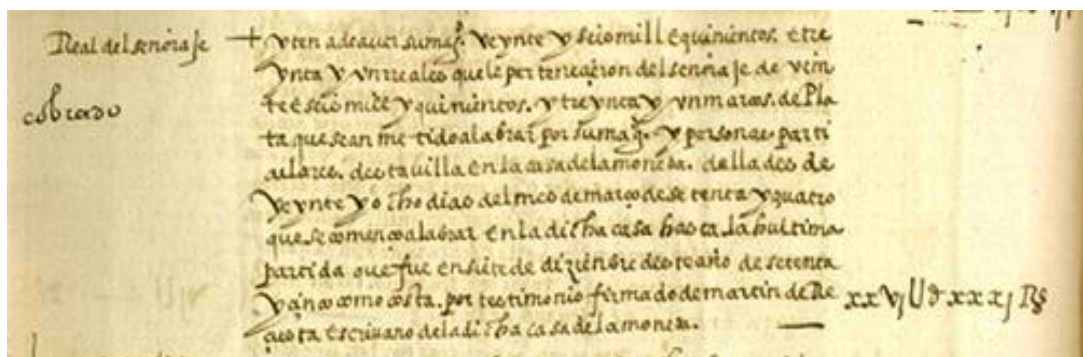 Real del señoraje
cobrado
+ yten a de aver su mag. veynte y seis mill e quinientos. e tre
ynta y un reales que le pertenecieron del señoraje de vein
te e seis mill y quinientos. y treynta y un marcos. de Pla
ta que sean metido a labrar por su mag. y personas parti
culares. desta villa en la casa de la moneda. della des de
veynte y ocho dias del mes de março de setenta y quatro
que se començo a labrar en la dicha casa hasta la hultima
partida que fue en siete de diziembre deste año de setenta
y cinco como costa. por testimonio firmado de martin de Re
acosta escrivano de la dicha casa de la moneda.
xxvjUdxxxj Rs